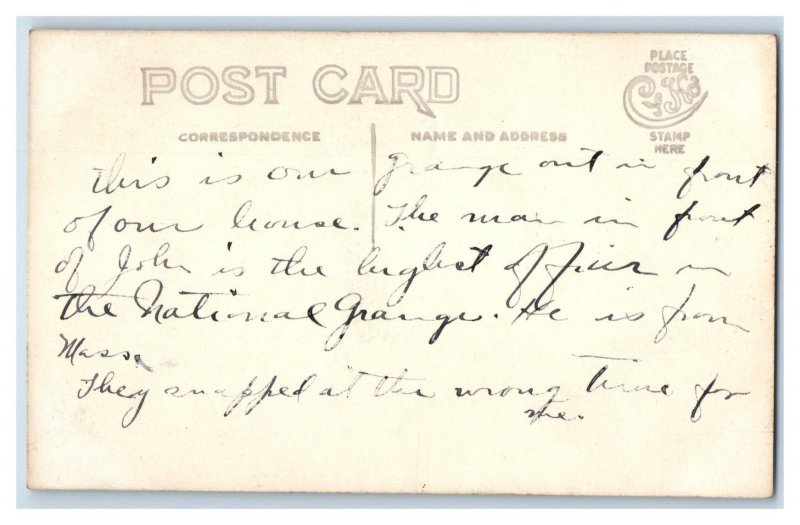 POST CARD
PLACE
POSTAGE
STAMP
HERE
CORRESPONDENCE
NAME AND ADDRESS
This is our Grange out in front
of our house. The man in front
of John is the highest officer in
the National Grange. He is from
Mass.
They snapped at the wrong time for
me.